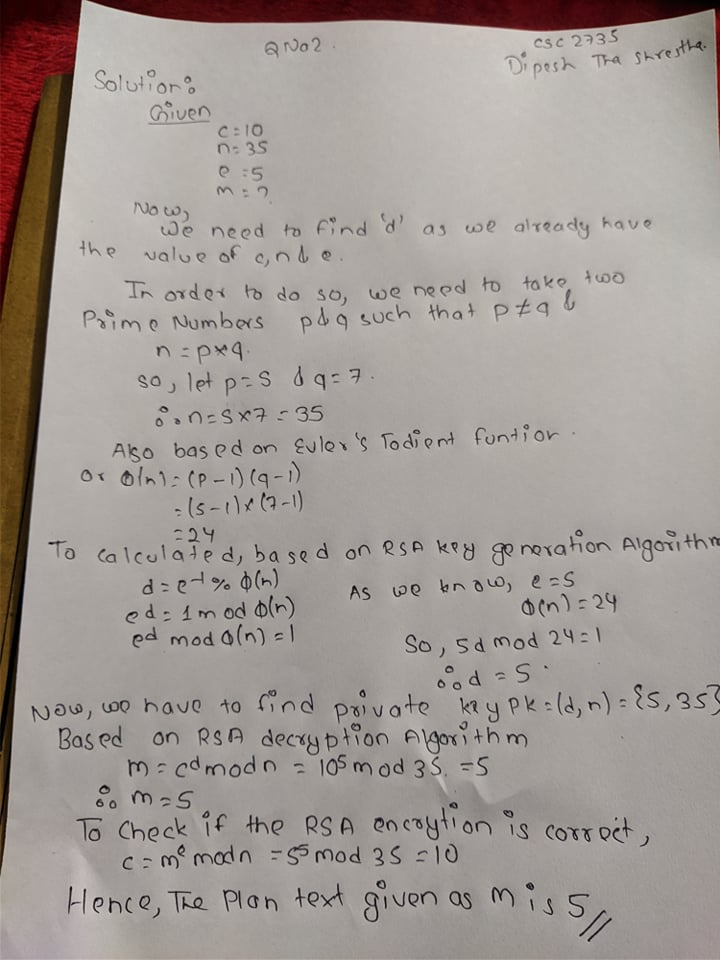 QNo2.
CSC 2735
Dipesh Tha Shrestha.
Solution:
Given
C=10
n=35
e=5
m=?
Now,
We need to find 'd' as we already have
the value of c,n & e.
In order to do so, we need to take two
Prime Numbers p&q such that p≠q &
n=p*q.
so, let p=5 & q=7.
∴n=5x7=35
Also based on Euler's Todient funtion.
Or Ø(n)=(P-1)(q-1)
=(5-1)x(7-1)
=24
To calculated, based on RSA key generation Algorithm
d=e⁻¹% Φ(n)
ed=1mod Φ(n)
ed mod Φ(n)=1
As we know, e=5
Φ(n)=24
So, 5d mod 24=1
∴d=5.
Now, we have to find private key PK=(d,n)={5,35}
Based on RSA decryption Algorithm
m=cᵈmodn = 10⁵mod 35. =5
∴ m=5
To check if the RSA encrytion is correct,
c=mᵉ modn =5⁵ mod 35=10
Hence, The Plan text given as m is 5//